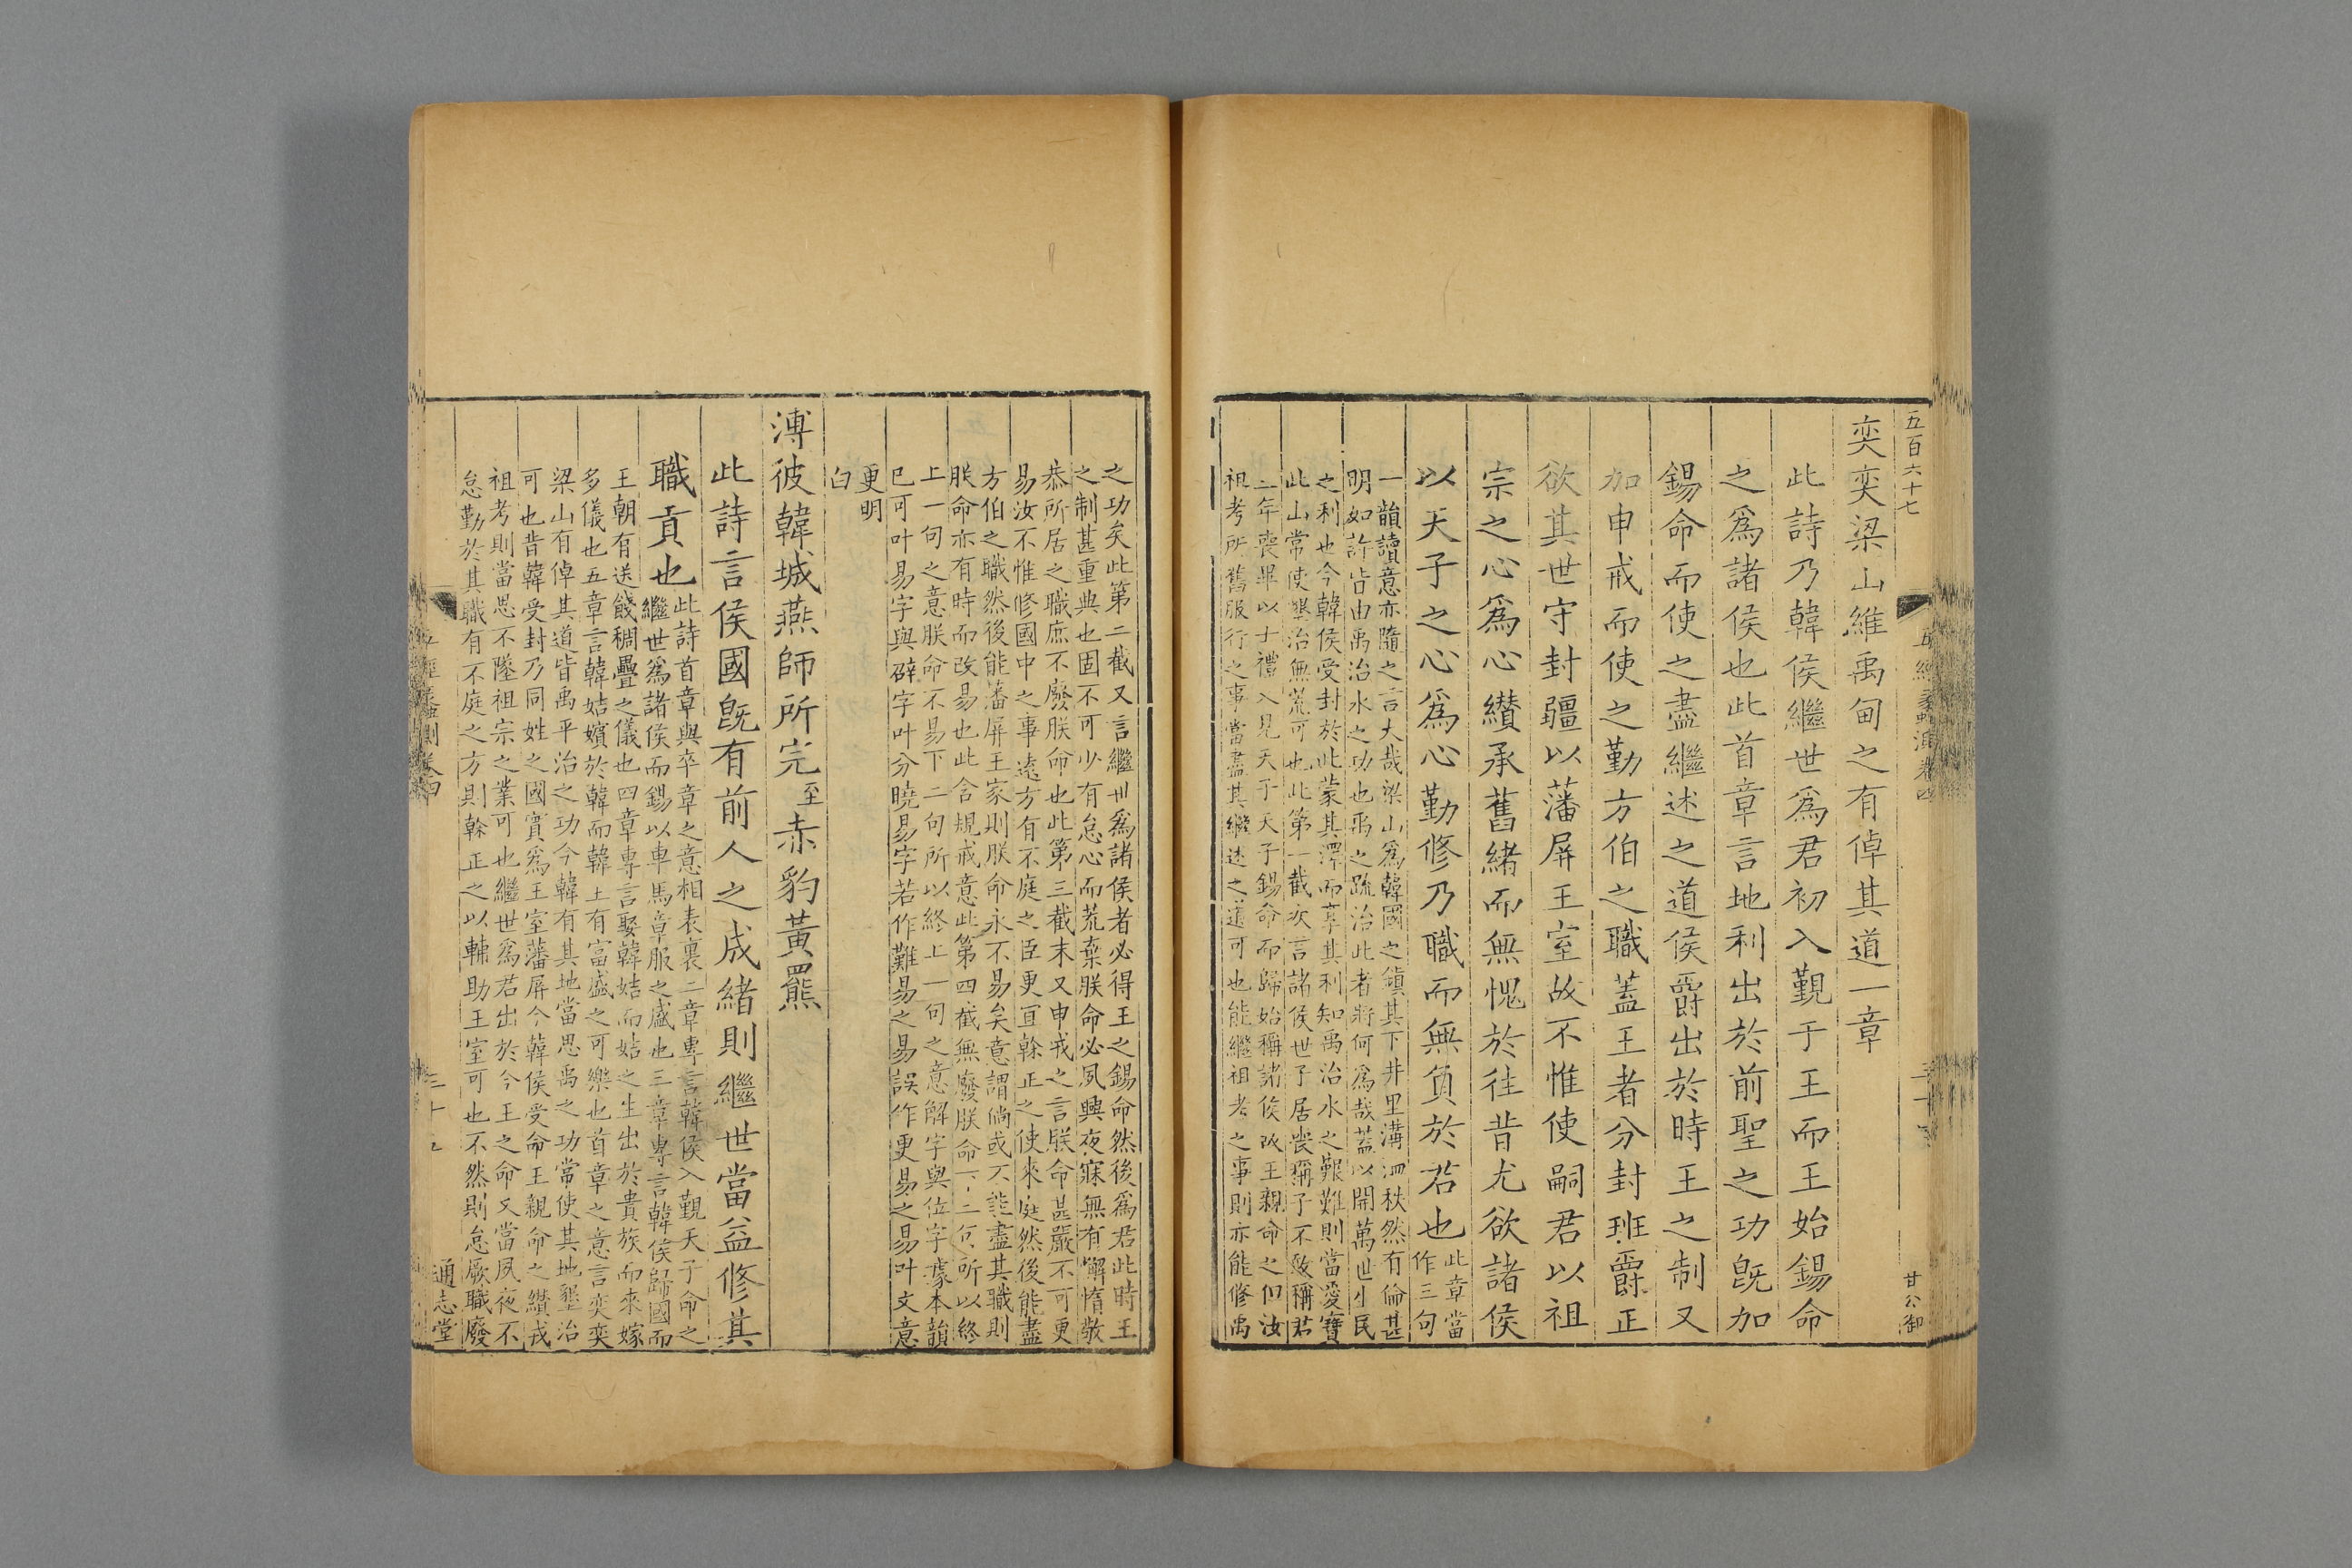 五百六十七
五經蠡測卷四
甘公御
奕奕梁山維禹甸之有倬其道一章
此詩乃韓侯繼世爲君初入覲于王而王始錫命
之爲諸侯也此首章言地利出於前聖之功旣加
錫命而使之盡繼述之道侯爵出於時王之制又
加申戒而使之勤方伯之職蓋王者分封班爵正
欲其世守封疆以藩屏王室故不惟使嗣君以祖
宗之心爲心纉承舊緒而無愧於往昔尤欲諸侯
以天子之心爲心勤修乃職而無負於若也
此章當
作三句
一韻讀意亦隨之言大哉梁山爲韓國之鎭其下井里溝洫秩然有倫甚
明如許皆由禹治水之功也禹之䟽治此者將何爲哉蓋以開萬世生民
之利也今韓侯受封於此蒙其澤而享其利知禹治水之艱難則當愛寶
此山常使墾治無荒可也此第一截次言諸侯世子居喪稱子不敢稱君
二年喪畢以士禮入見天子天子錫命而歸始稱諸侯故王親命之但汝
祖考所舊服行之事當盡其繼述之道可也能繼祖考之事則亦能修禹
之功矣此第二截又言繼世爲諸侯者必得王之錫命然後爲君此時王
之制甚重典也固不可少有怠心而荒棄朕命必夙興夜寐無有懈惰敬
恭所居之職庶不廢朕命也此第三截末又申戒之言朕命甚嚴不可更
易汝不惟修國中之事遠方有不庭之臣更宜榦正之使來庭然後能盡
方伯之職然後能藩屏王家則朕命永不易矣意謂倘或不能盡其職則
朕命亦有時而改易也此含規戒意此第四截無廢朕命下二句所以終
上一句之意朕命不易下二句所以終上一句之意解字與位字據本韻
巳可叶易字與辟字叶分曉易字若作難易之易誤作更易之易叶文意
更明
白
溥彼韓城燕師所完至赤豹黃羆
此詩言侯國旣有前人之成緒則繼世當益修其
職貢也
此詩首章與卒章之意相表裏二章專言韓侯入覲天子命之
繼世爲諸侯而錫以車馬章服之盛也三章專言韓侯歸國而
王朝有送餞稠疊之儀也四章專言娶韓姞而姞之生出於貴族而來嫁
多儀也五章言韓姞嬪於韓而韓土有富盛之可樂也首章之意言奕奕
梁山有倬其道皆禹平治之功今韓有其地當思禹之功常使其地墾治
可也昔韓受封乃同姓之國實爲王室藩屏今韓侯受命王親命之纉戎
祖考則當思不墜祖宗之業可也繼世爲君出於今王之命又當夙夜不
怠勤於其職有不庭之方則榦正之以輔助王室可也不然則怠厥職廢
五經蠡測卷四
通志堂